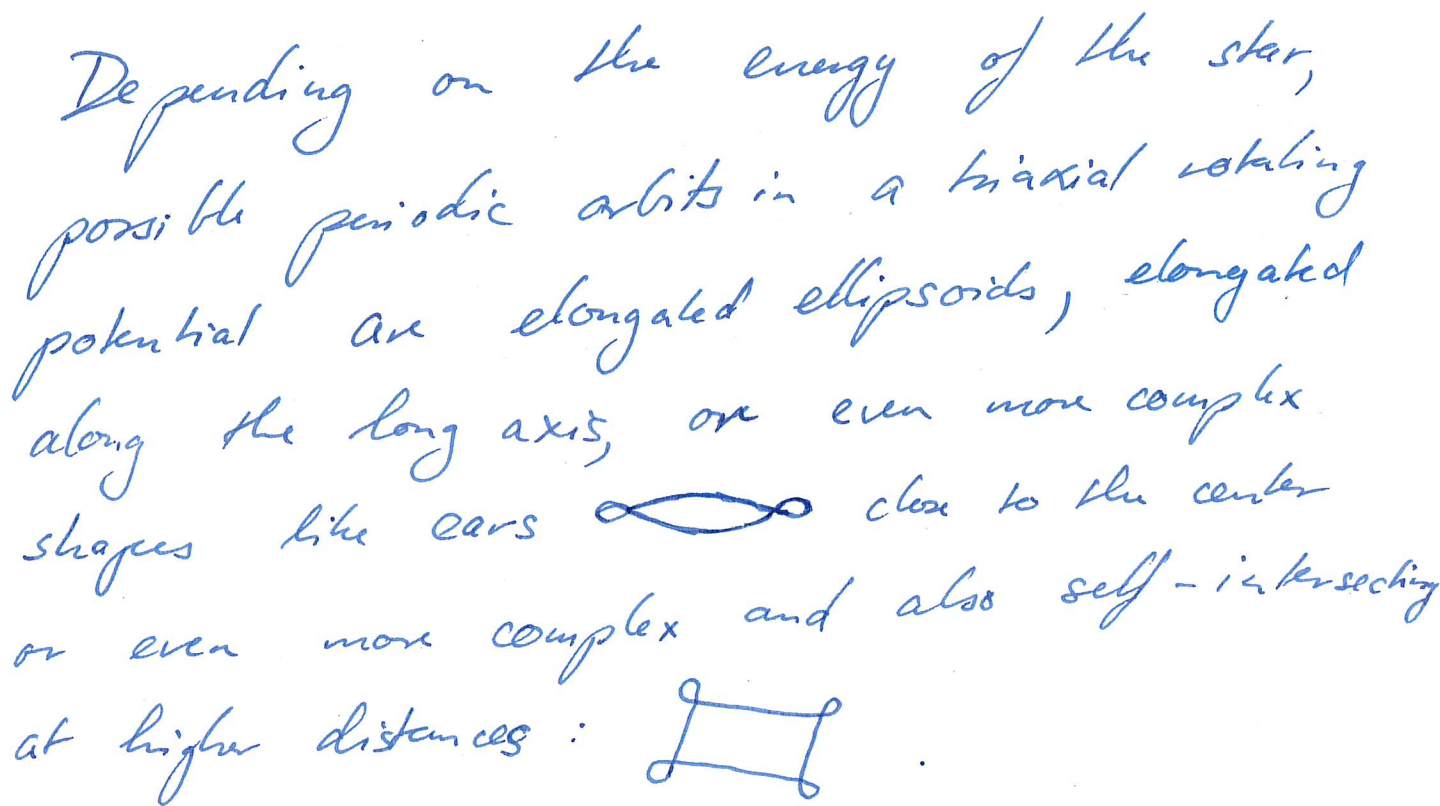 Depending on the energy of the star,
possible periodic orbits in a triaxial rotating
potential are elongated ellipsoids, elongated
along the long axis, or even more complex
shapes like ears close to the center
or even more complex and also self-intersecting
at higher distances: .